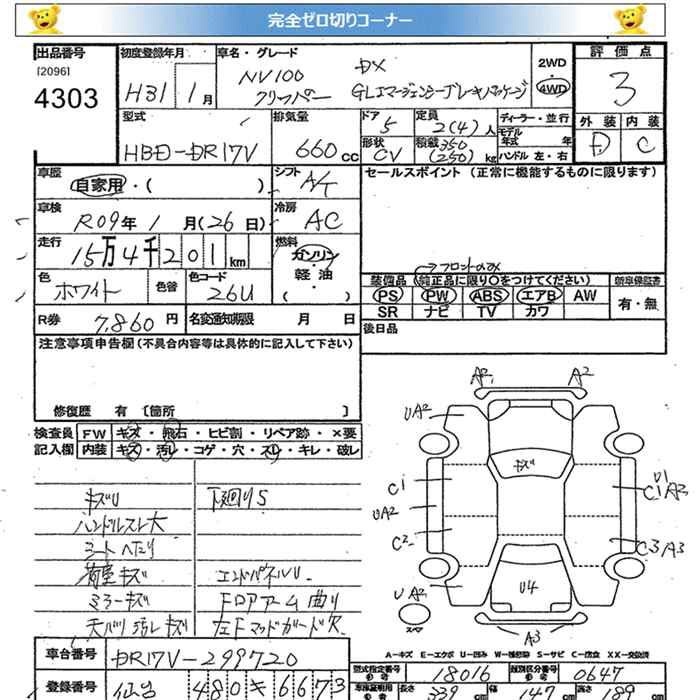 完全ゼロ切りコーナー
出品番号 初度登録年月 車名・グレード 2WD 評価点
[2096] NV100 DX 4WD
4303 H31 1月 クリッパー GLエマージェンシーブレーキパッケージ 3
型式 排気量 ドア 5 定員 2(4)人 ディーラー・並行 外装 内装
HBD-DR17V 660cc 形状 CV 積載 350 (250)kg モデル年式 年 ハンドル 左・右 D C
車歴 自家用・( ) シフト A/T セールスポイント(正常に機能するものに限ります)
車検 R09年 1月(26日) 冷房 AC
走行 15万4千201km 燃料 ガソリン
軽油
( )
→フロントのみ
色 ホワイト 色替 色コード 26U 装備品(純正品に限り○をつけてください) 新車保証書
PS PW ABS エアB AW 有・無
R券 7,860円 名変通知期限 月 日 SR ナビ TV カワ
注意事項申告欄(不具合内容等は具体的に記入して下さい) 後日品
修復歴 有 [箇所 ]
検査員 FW キズ・飛石・ヒビ割・リペア跡・×要
記入欄 内装 キズ・汚レ・コゲ・穴・スレ・キレ・破レ
キズU 下廻りS
ハンドルスレ大
シートヘたり
荷室キズ エンドパネルU
ミラーキズ FロアアームO曲り
天バリ汚レキズ 左Fマッドガード欠
A2 A2
UA2
キズ
C1 U1
C1A3
UA2
C2 C3/A3
UA2 U4
スペア A3
A-キズ E-エクボ U-凹み W-補修跡 S-サビ C-腐食 XX-交換済
車台番号 DR17V-299720 型式指定番号 18016 類別区分番号 0647
登録番号 仙台 480 き 6673 車庫証明用参考 長さ 339cm 幅 147cm 高さ 189cm